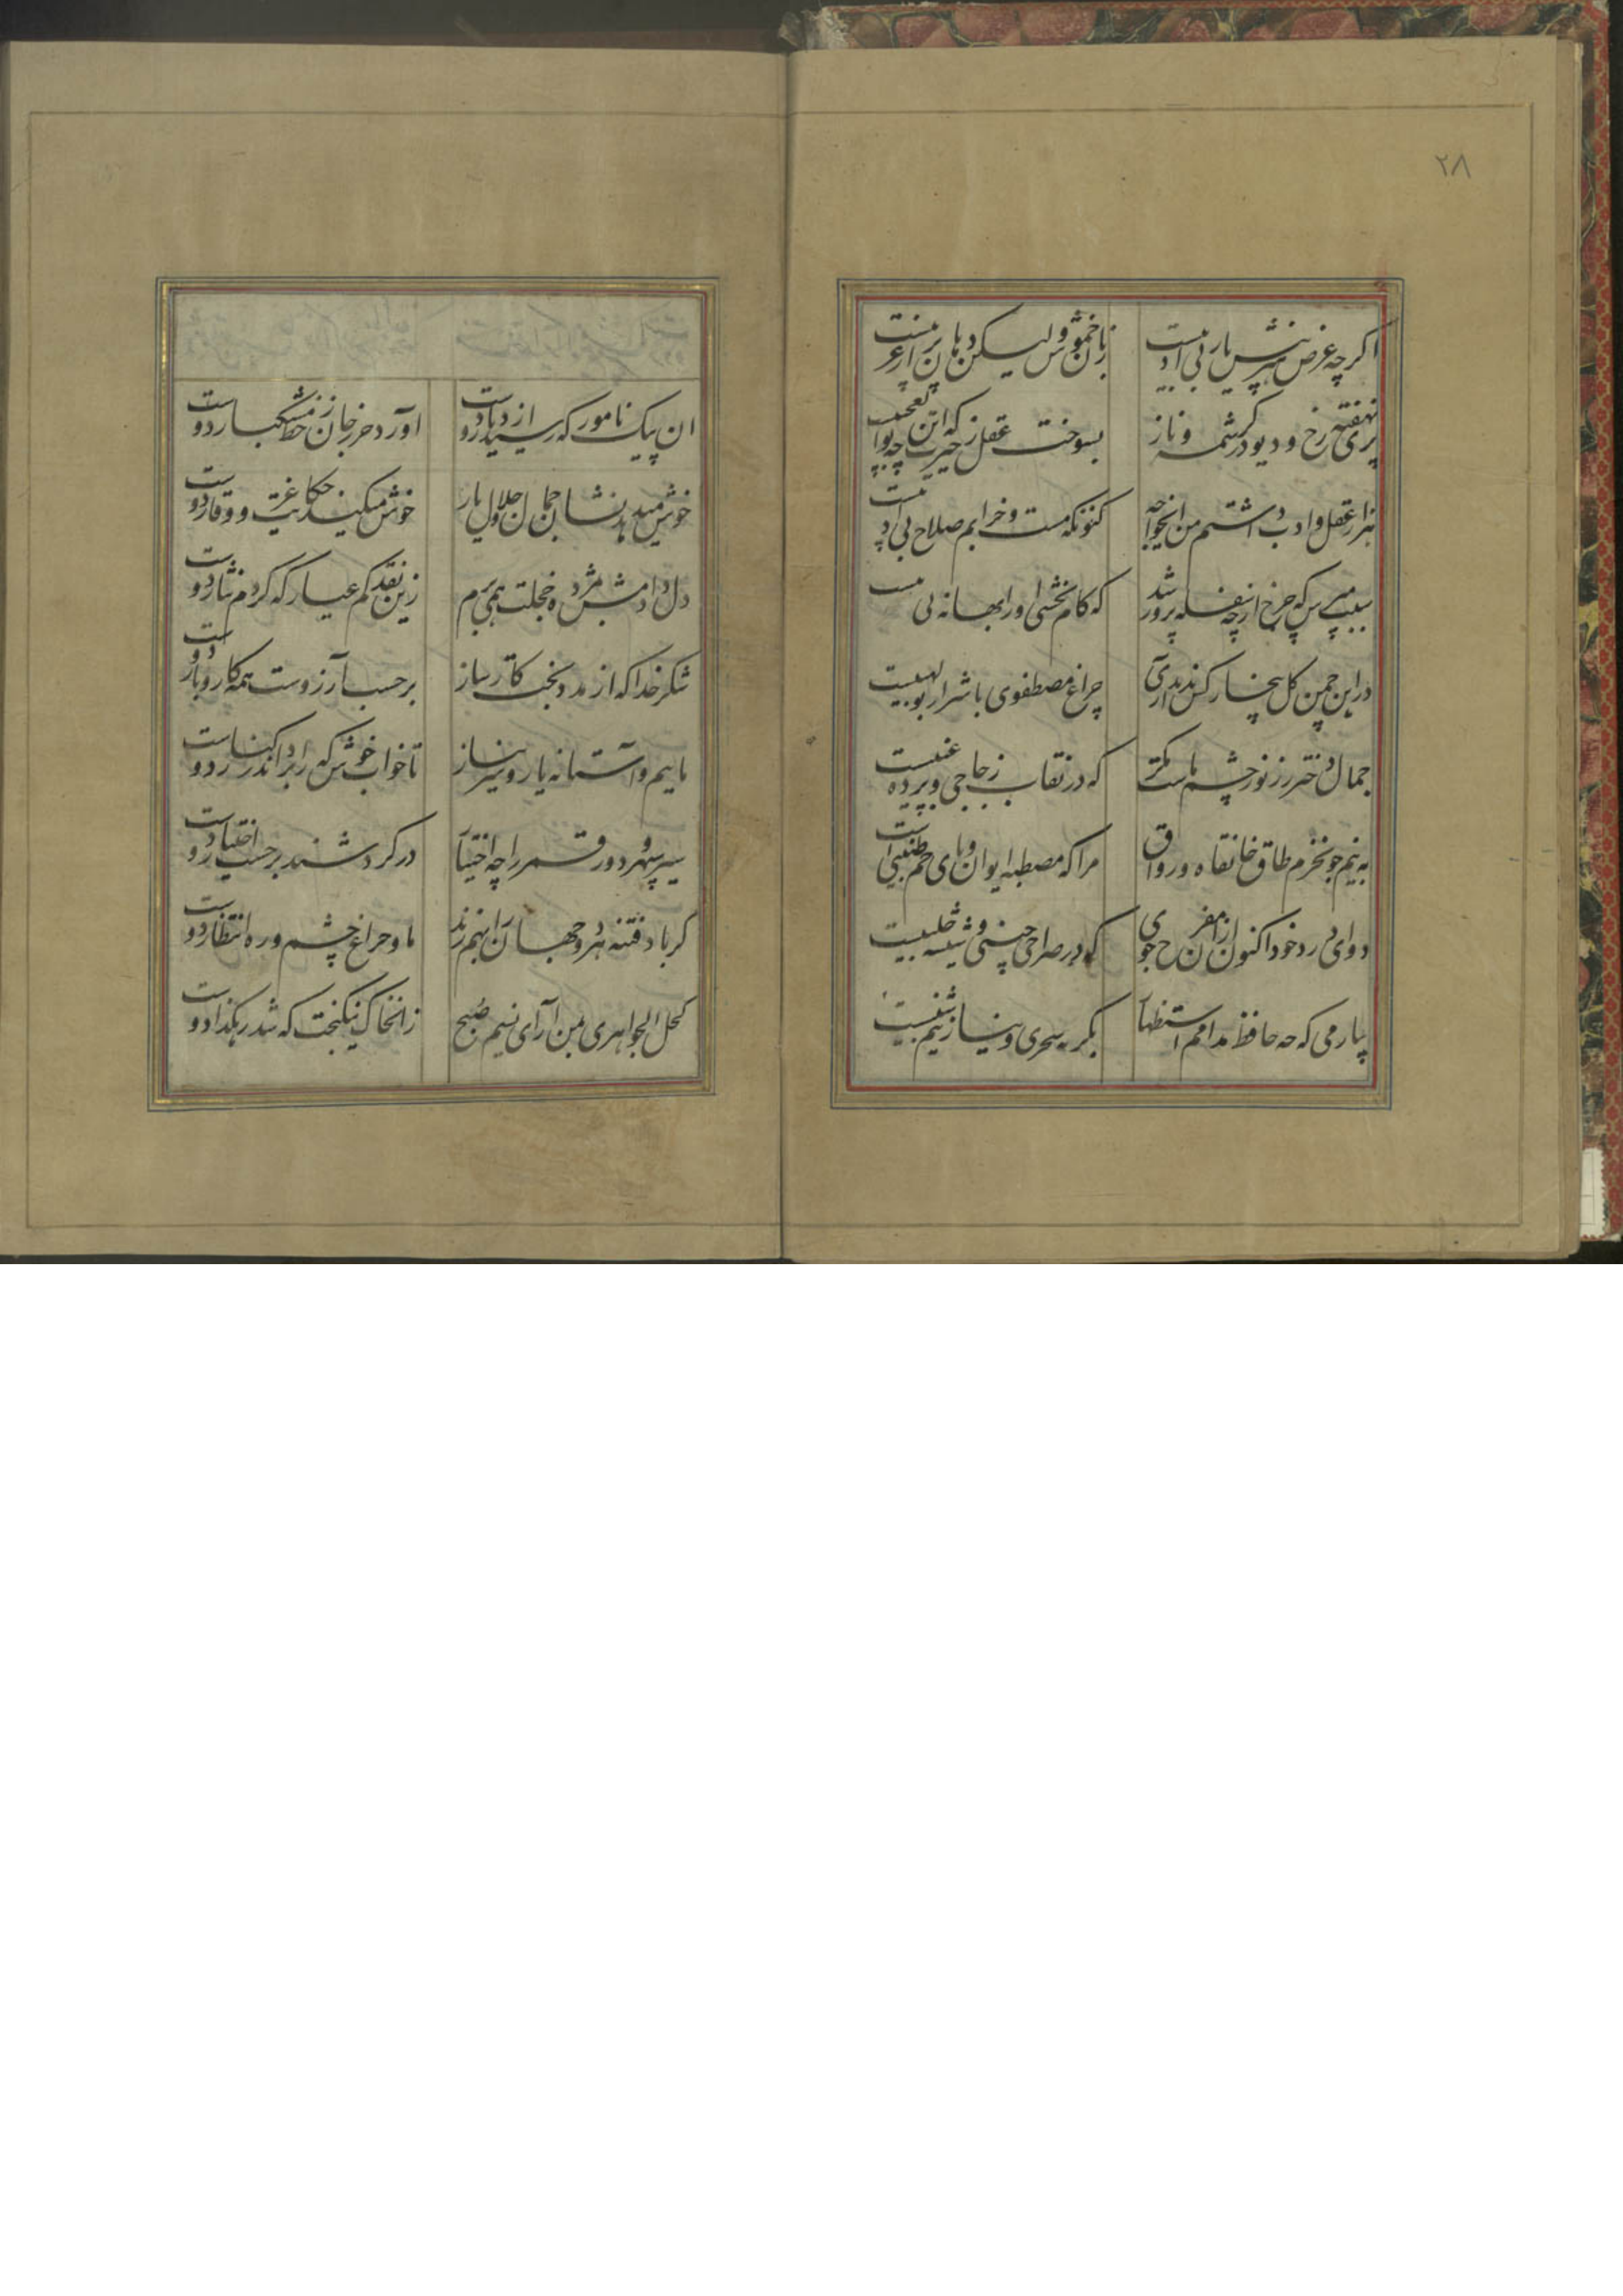 ۲۸
اگرچه عرض هنر پیش یار بی ادبیست
زبان خموش ولیکن دهان پر از عربیست
پری نهفته رخ و دیو در کرشمه و ناز
بسوخت عقل ز حیرت که این چه بوالعجبیست
هزار عقل و ادب داشتم من ای خواجه
کنونکه مست و خرابم صلاح بی ادبیست
سبب مپرس که چرخ از چه سفله پرور شد
که کام بخشی او را بهانه بی سببیست
در این چمن گل بیخار کس ندید آری
چراغ مصطفوی با شرار بولهبیست
جمال دختر رز نور چشم ماست مگر
که در نقاب زجاجی و پرده عنبیست
به نیم جو نخرم طاق خانقاه و رواق
مرا که مصطبه ایوان و پای خم طنبی است
دوای درد خود اکنون از ان مفرح جوی
که در صراحی چینی و شیشه حلبیست
بیار می که چه حافظ مدامم استظهار
بگریه سحری و نیاز نیم شبیست
ان پیک نامور که رسید از دیار دوست
اورد حرز جان ز خط مشکبار دوست
خوش میدهد نشان جمال و جلال یار
خوش میکند حکایت عز و وقار دوست
دل دادمش بمژده و خجلت همی برم
زین نقد کم عیار که کردم نثار دوست
شکر خدا که از مدد بخت کارساز
بر حسب آرزوست همه کار و بار دوست
ماییم و آستانه یار و سر نیاز
تا خواب خوش که را برد اندر کنار دوست
سیر سپهر و دور قمر را چه اختیار
در گردشند بر حسب اختیار دوست
گر باد فتنه هر دو جهان را بهم زند
ما و چراغ چشم و ره انتظار دوست
کحل الجواهری بمن آر ای نسیم صبح
زان خاک نیکبخت که شد رهگذار دوست